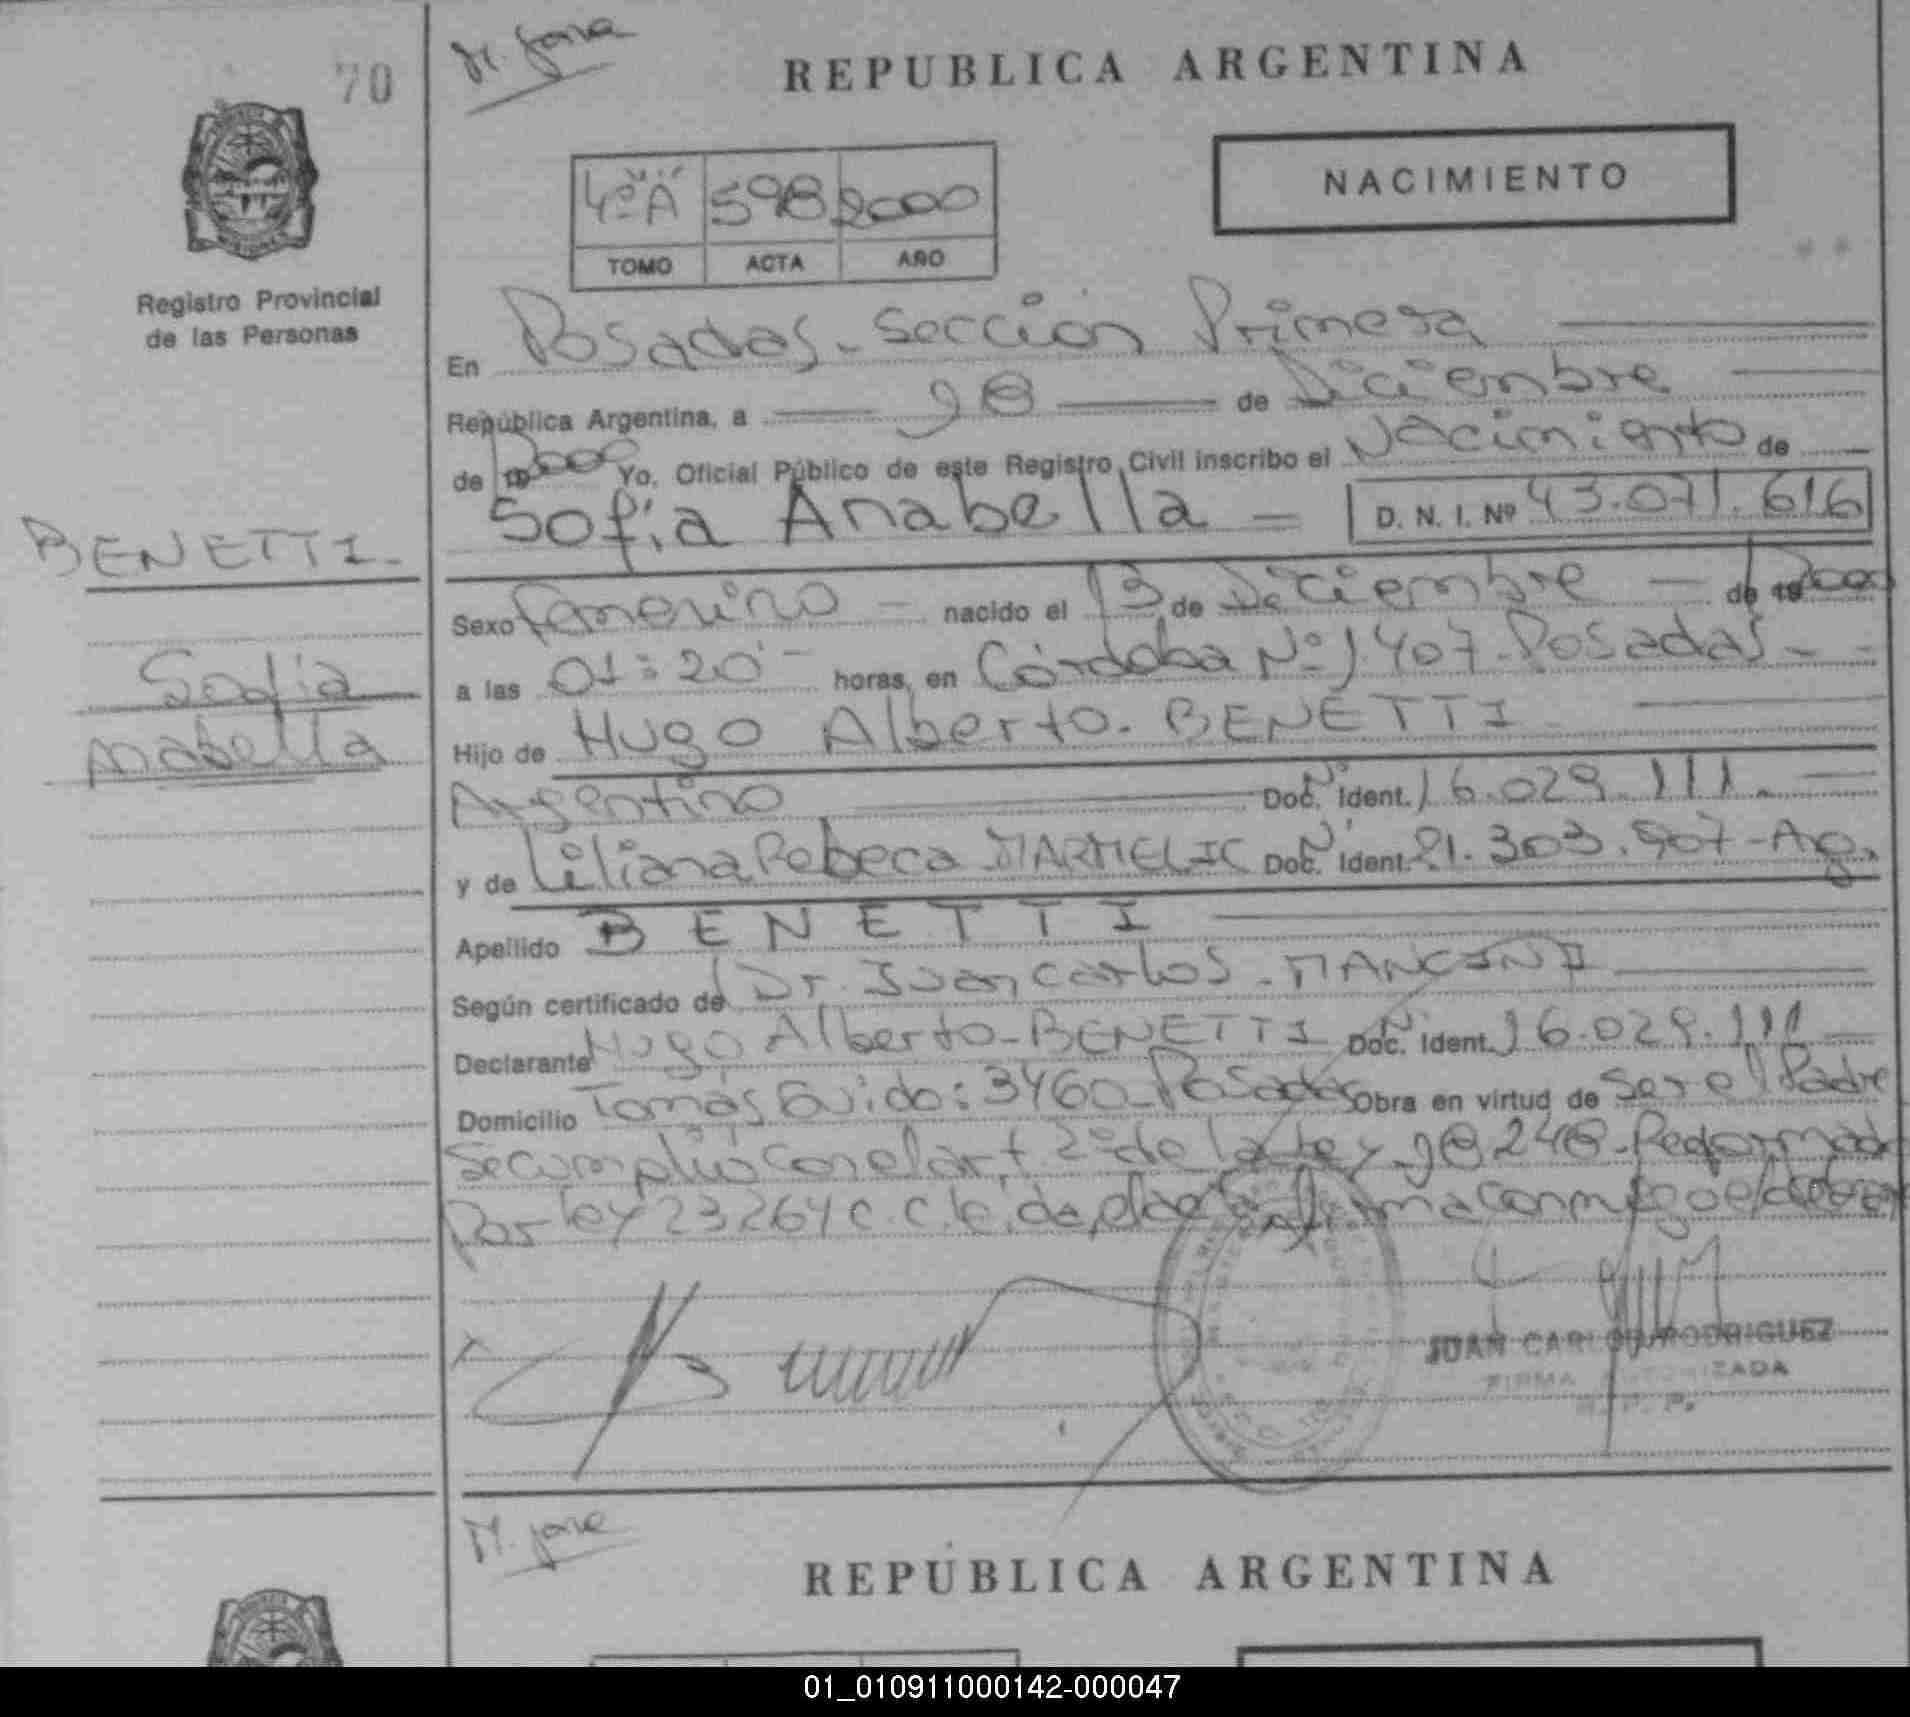 70
REPUBLICA ARGENTINA
NACIMIENTO
4º "A" 598 2000
TOMO ACTA AÑO
Registro Provincial
de las Personas
En Posadas - Sección Primera
República Argentina, a 28 de Diciembre
de 2000 Yo, Oficial Público de este Registro Civil inscribo el Nacimiento de
Sofia Anabella D. N. I. Nº 43.071.616
BENETTI
Sofia
Anabella
Sexo femenino nacido el 13 de Diciembre de 2000
a las 01:20 horas, en Córdoba Nº 1407 - Posadas
Hijo de Hugo Alberto - BENETTI
Argentino Doc. Nº Ident. 16.029.111
y de Liliana Rebeca MARMELIC Doc. Nº Ident. 21.303.907 - Arg.
Apellido BENETTI
Según certificado de Dr. Juan Carlos - MANCINI
Declarante Hugo Alberto - BENETTI Doc. Nº Ident. 16.029.111
Domicilio Tomás Guido: 3460 - Posadas Obra en virtud de ser el Padre
Se cumplió con el art. 2º de la Ley 18248 - Reformada
por ley 23264 firma conmigo el
JUAN CARLOS RODRIGUEZ
FIRMA AUTORIZADA
REPÚBLICA ARGENTINA
01_010911000142-000047